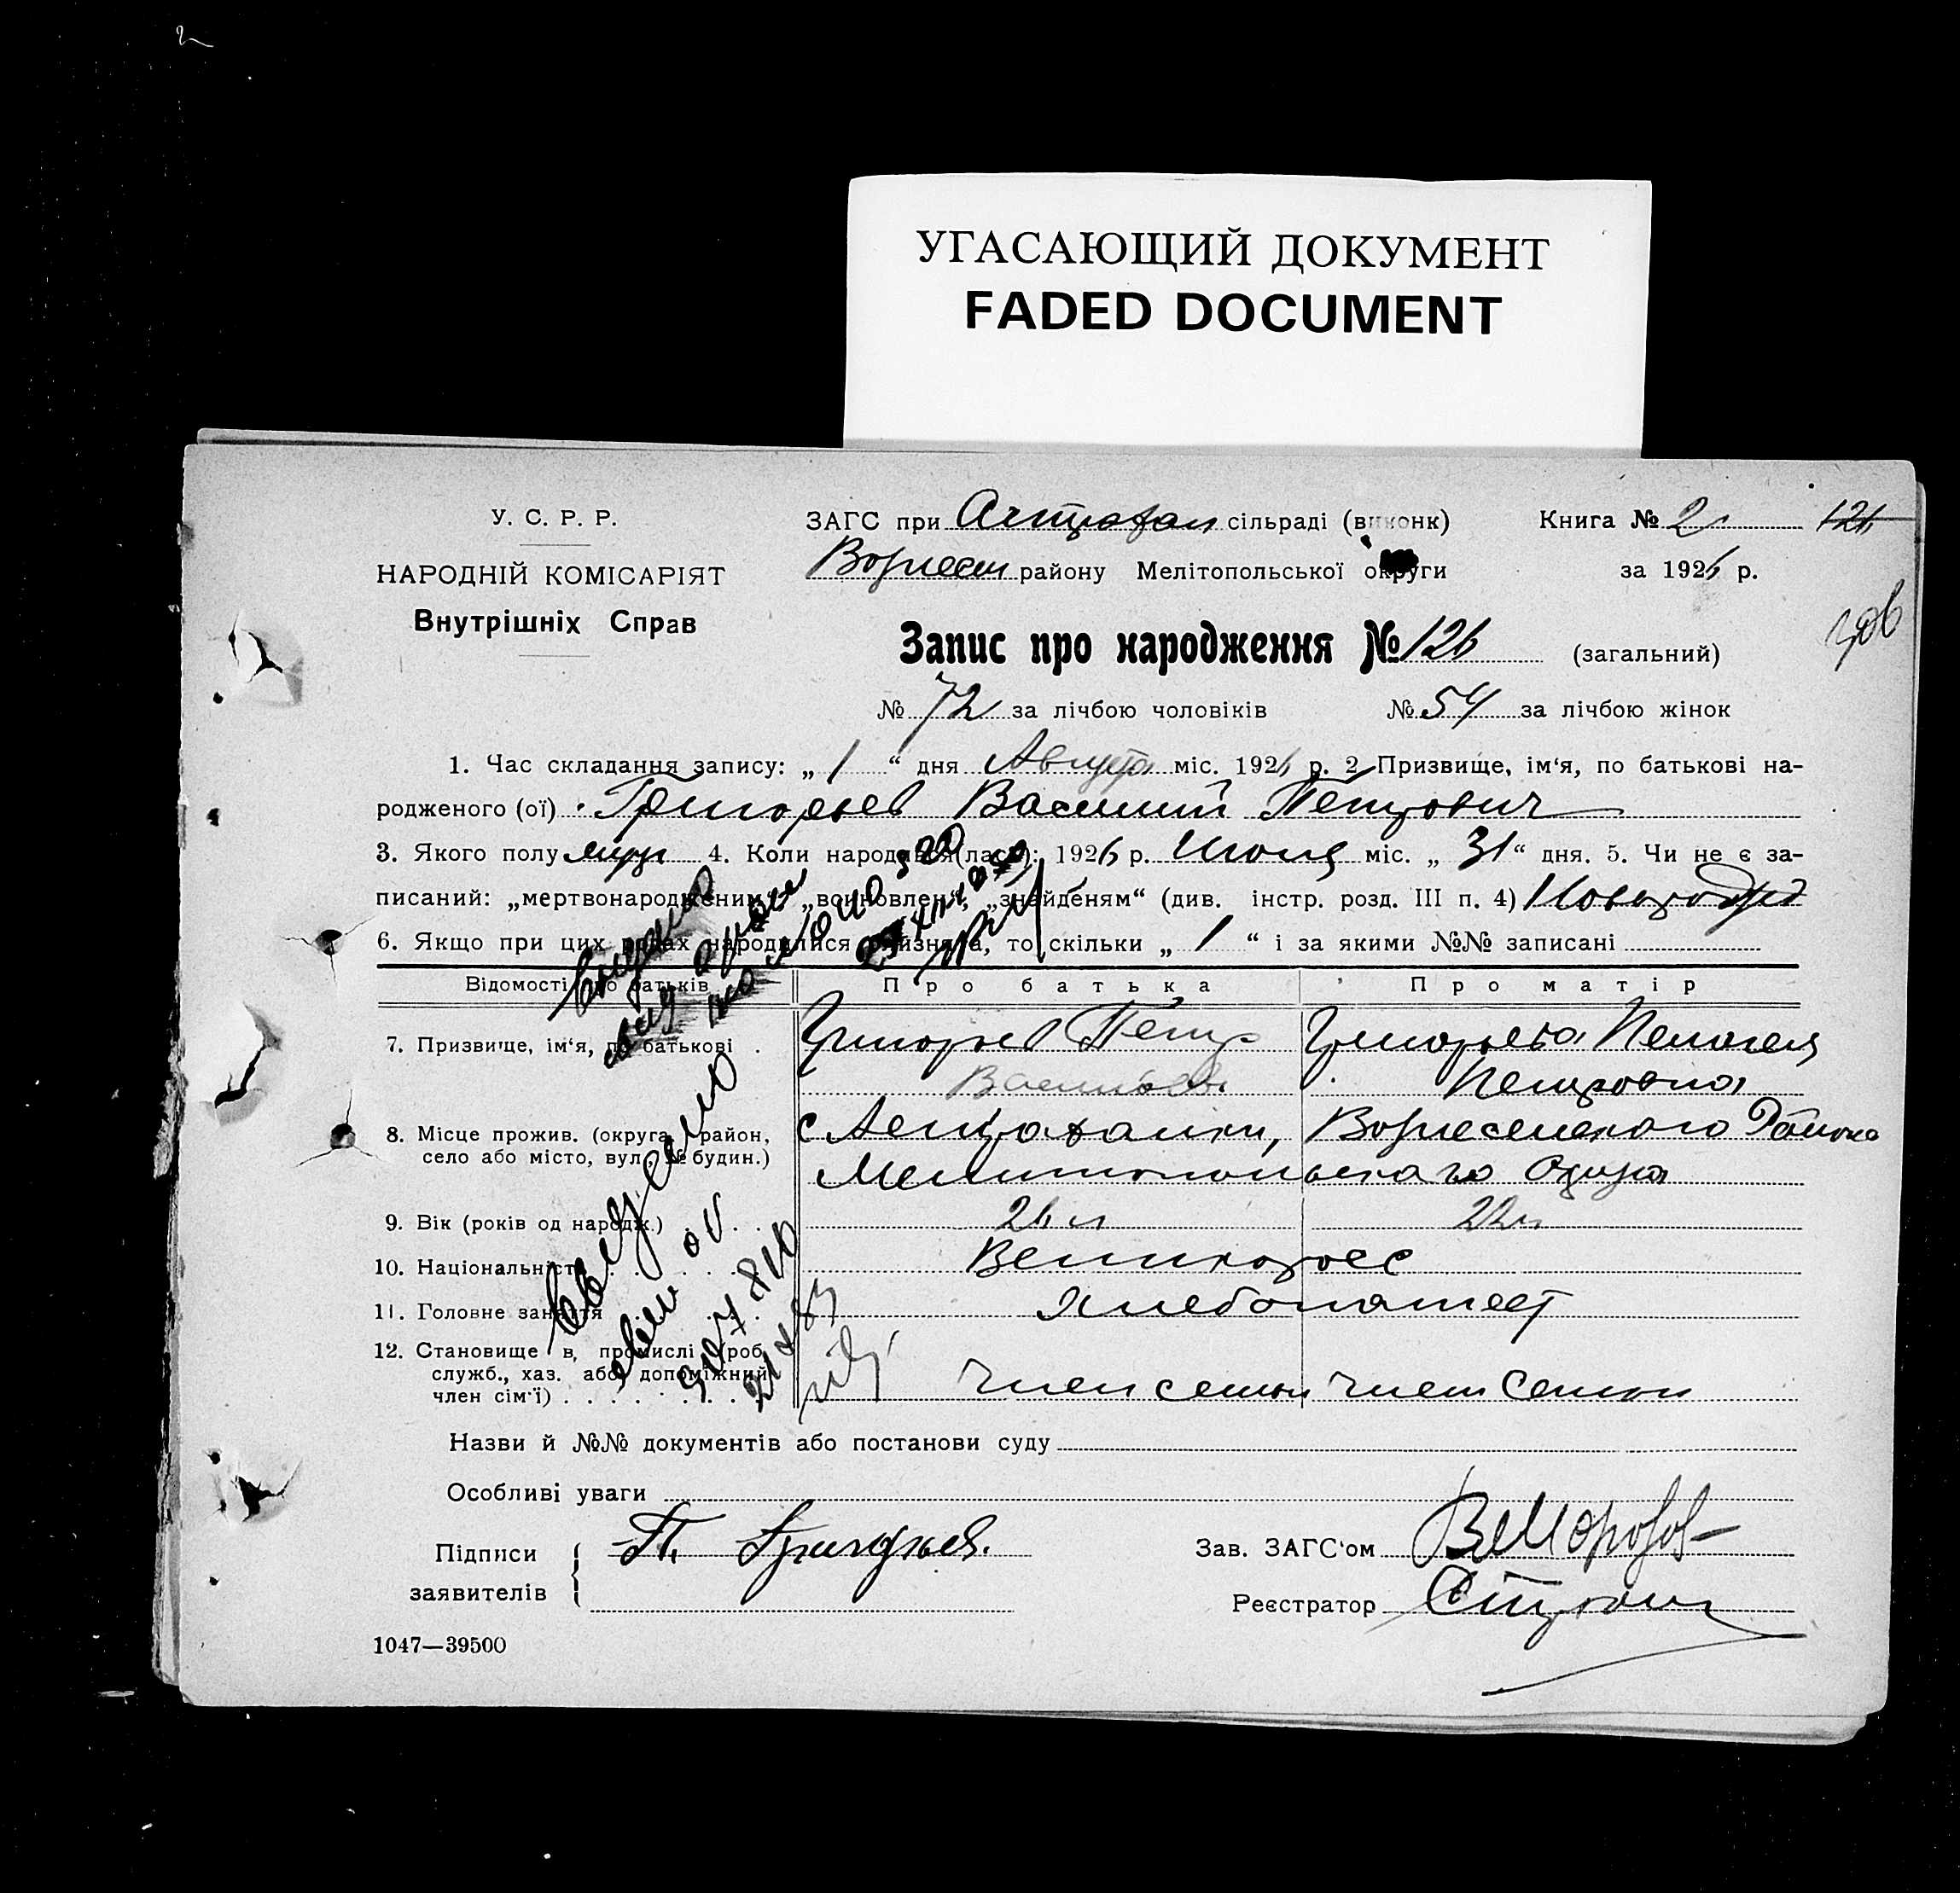 УГАСАЮЩИЙ ДОКУМЕНТ
FADED DOCUMENT
У. С. Р. Р.
НАРОДНІЙ КОМІСАРІЯТ
Внутрішніх Справ
ЗАГС при Астрахан сільраді (виконк)
Книга № 2
126
Вознесен району Мелітопольської округи
за 1926 р.
Запис про народження № 126 (загальний)
№ 72 за лічбою чоловіків № 54 за лічбою жінок
1. Час складання запису: „ 1 “ дня Августа міс. 1926 р. 2 Призвище, ім‘я, по батькові на-
родженого (ої) Григорьев Василий Петрович
3. Якого полу муж 4. Коли народився(лася): 1926 р. Июля міс. „ 31 “ дня. 5. Чи не є за-
писаний: „мертвонародженим“, „воиновлен“, „знайденям“ (див. інстр. розд. III п. 4)
6. Якщо при цих родах народилися близнята, то скільки „ 1 “ і за якими №№ записані
Відомості про батьків Про батька Про матір
7. Призвище, ім‘я, по батькові Григорьев Петр Григорьева Пелагея
Васильев Петровна
8. Місце прожив. (округа, район, с Астраханки, Вознесенского Района
село або місто, вул., № будин.) Мелитопольского Округа
9. Вік (років од народж.) 26 л 22 л
10. Національність Великоросс
11. Головне заняття Хлебопашест
12. Становище в промислі (роб.
служб., хаз. або допоміжний
член сім‘ї) Член семьи Член Семьи
Назви й №№ документів або постанови суду
Особливі уваги
Підписи П. Григорьев.
заявителів
Зав. ЗАГС‘ом ВМорозов
Реєстратор
1047—39500